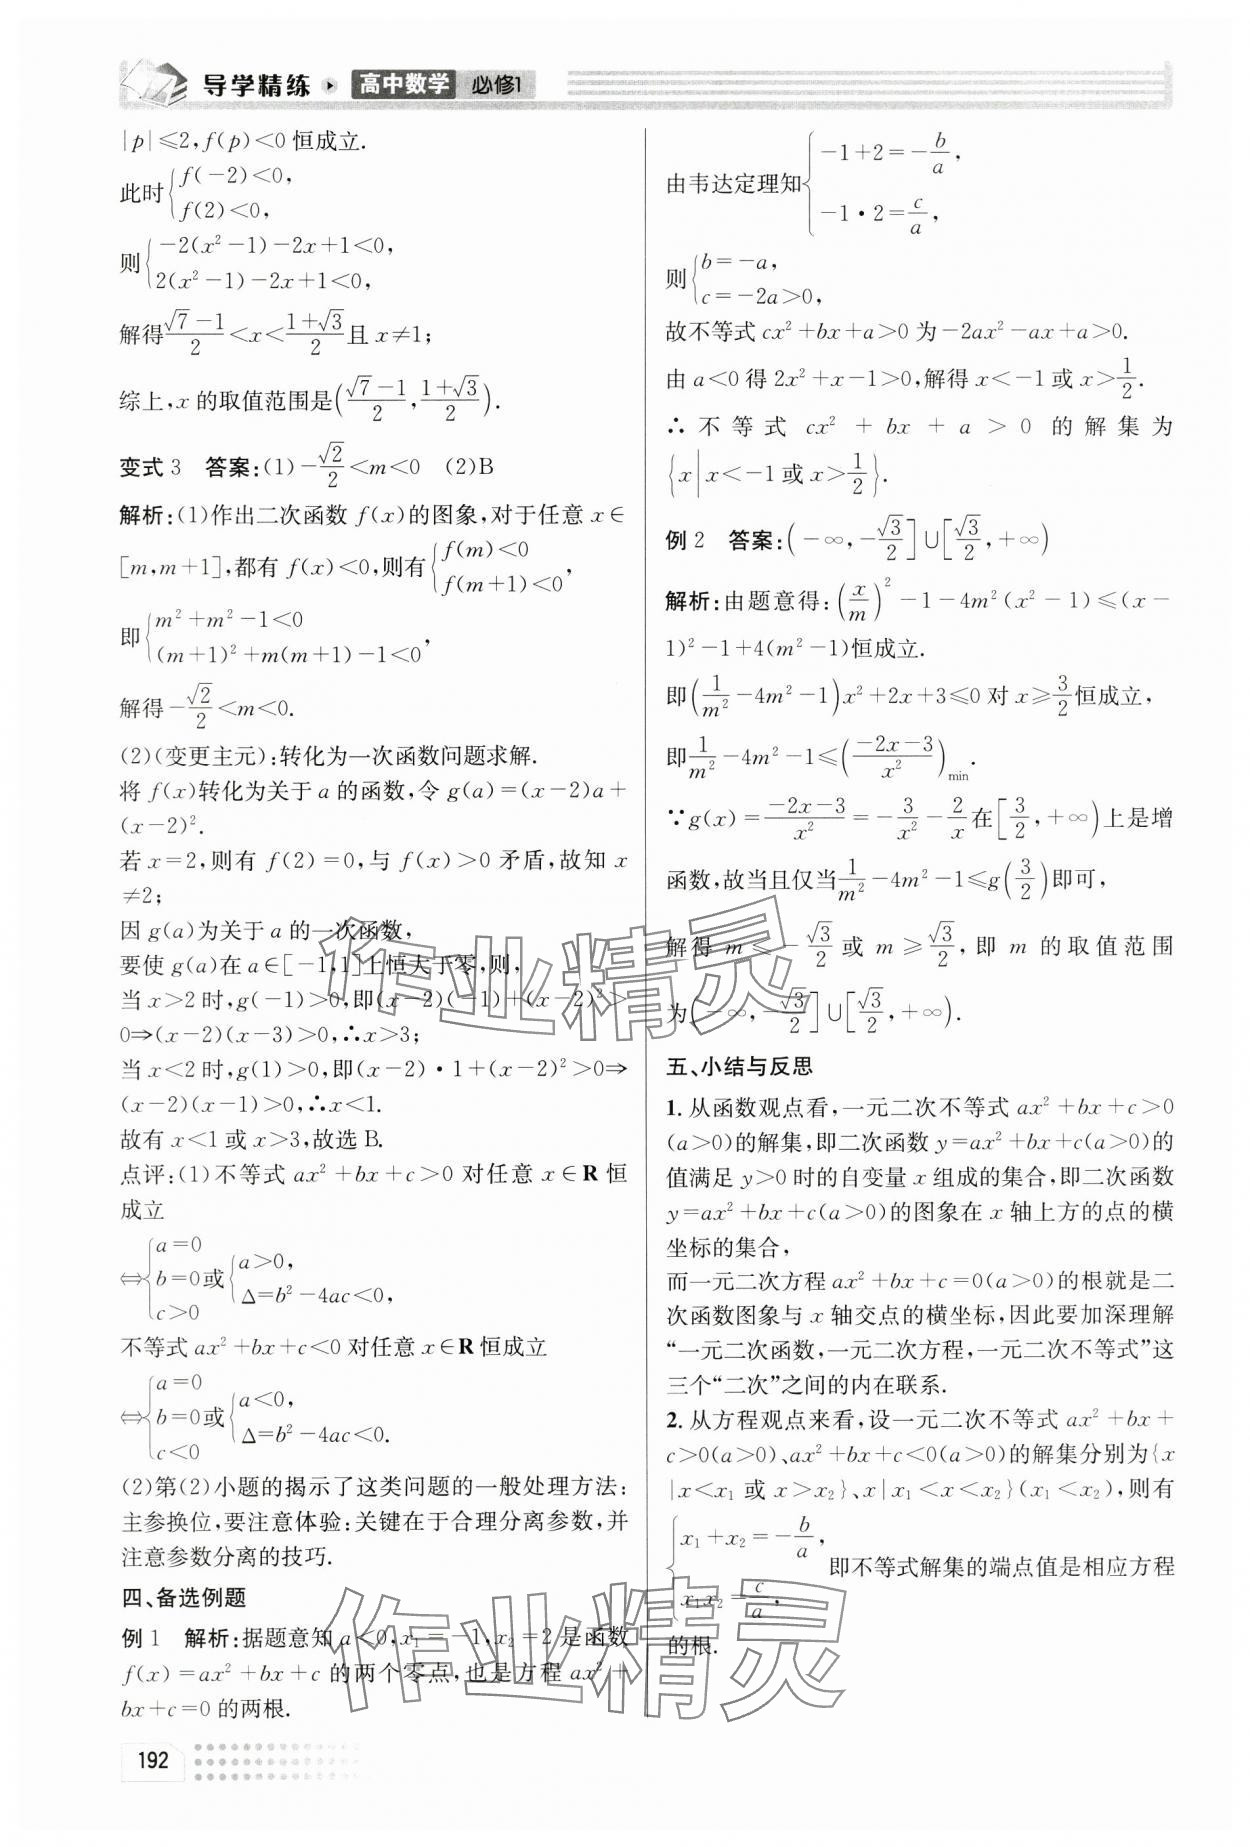 导学精练 高中数学 必修1
|p|≤2,f(p)<0恒成立.
此时{f(-2)<0, f(2)<0,
则{-2(x²-1)-2x+1<0, 2(x²-1)-2x+1<0,
解得(√7-1)/2<x<(1+√3)/2且x≠1;
综上,x的取值范围是((√7-1)/2,(1+√3)/2).
变式3 答案:(1)-√2/2<m<0 (2)B
解析:(1)作出二次函数f(x)的图象,对于任意x∈
[m,m+1],都有f(x)<0,则有{f(m)<0 f(m+1)<0,
即{m²+m²-1<0 (m+1)²+m(m+1)-1<0,
解得-√2/2<m<0.
(2)(变更主元):转化为一次函数问题求解.
将f(x)转化为关于a的函数,令g(a)=(x-2)a+
(x-2)².
若x=2,则有f(2)=0,与f(x)>0矛盾,故知x
≠2;
因g(a)为关于a的一次函数,
要使g(a)在a∈[-1,1]上恒大于零,则,
当x>2时,g(-1)>0,即(x-2)(-1)+(x-2)²>
0⇒(x-2)(x-3)>0,∴x>3;
当x<2时,g(1)>0,即(x-2)·1+(x-2)²>0⇒
(x-2)(x-1)>0,∴x<1.
故有x<1或x>3,故选B.
点评:(1)不等式ax²+bx+c>0对任意x∈R恒
成立
⇔{a=0 b=0 c>0或{a>0, Δ=b²-4ac<0,
不等式ax²+bx+c<0对任意x∈R恒成立
⇔{a=0 b=0 c<0或{a<0, Δ=b²-4ac<0.
(2)第(2)小题的揭示了这类问题的一般处理方法:
主参换位,要注意体验:关键在于合理分离参数,并
注意参数分离的技巧.
四、备选例题
例1 解析:据题意知a<0,x₁=-1,x₂=2是函数
f(x)=ax²+bx+c的两个零点,也是方程ax²+
bx+c=0的两根.
192
由韦达定理知{-1+2=-b/a, -1·2=c/a,
则{b=-a, c=-2a>0,
故不等式cx²+bx+a>0为-2ax²-ax+a>0.
由a<0得2x²+x-1>0,解得x<-1或x>1/2.
∴不等式cx²+bx+a>0的解集为
{x|x<-1或x>1/2}.
例2 答案:(-∞,-√3/2]∪[√3/2,+∞)
解析:由题意得:(x/m)²-1-4m²(x²-1)≤(x-
1)²-1+4(m²-1)恒成立.
即(1/m²-4m²-1)x²+2x+3≤0对x≥3/2恒成立,
即1/m²-4m²-1≤((-2x-3)/x²)min.
∵g(x)=(-2x-3)/x²=-3/x²-2/x在[3/2,+∞)上是增
函数,故当且仅当1/m²-4m²-1≤g(3/2)即可,
解得m≤-√3/2或m≥√3/2,即m的取值范围
为(-∞,-√3/2]∪[√3/2,+∞).
五、小结与反思
1.从函数观点看,一元二次不等式ax²+bx+c>0
(a>0)的解集,即二次函数y=ax²+bx+c(a>0)的
值满足y>0时的自变量x组成的集合,即二次函数
y=ax²+bx+c(a>0)的图象在x轴上方的点的横
坐标的集合,
而一元二次方程ax²+bx+c=0(a>0)的根就是二
次函数图象与x轴交点的横坐标,因此要加深理解
“一元二次函数,一元二次方程,一元二次不等式”这
三个“二次”之间的内在联系.
2.从方程观点来看,设一元二次不等式ax²+bx+
c>0(a>0)、ax²+bx+c<0(a>0)的解集分别为{x
|x<x₁或x>x₂}、x|x₁<x<x₂}(x₁<x₂),则有
{x₁+x₂=-b/a, x₁x₂=c/a, 即不等式解集的端点值是相应方程
的根.
作业精灵
作业精灵